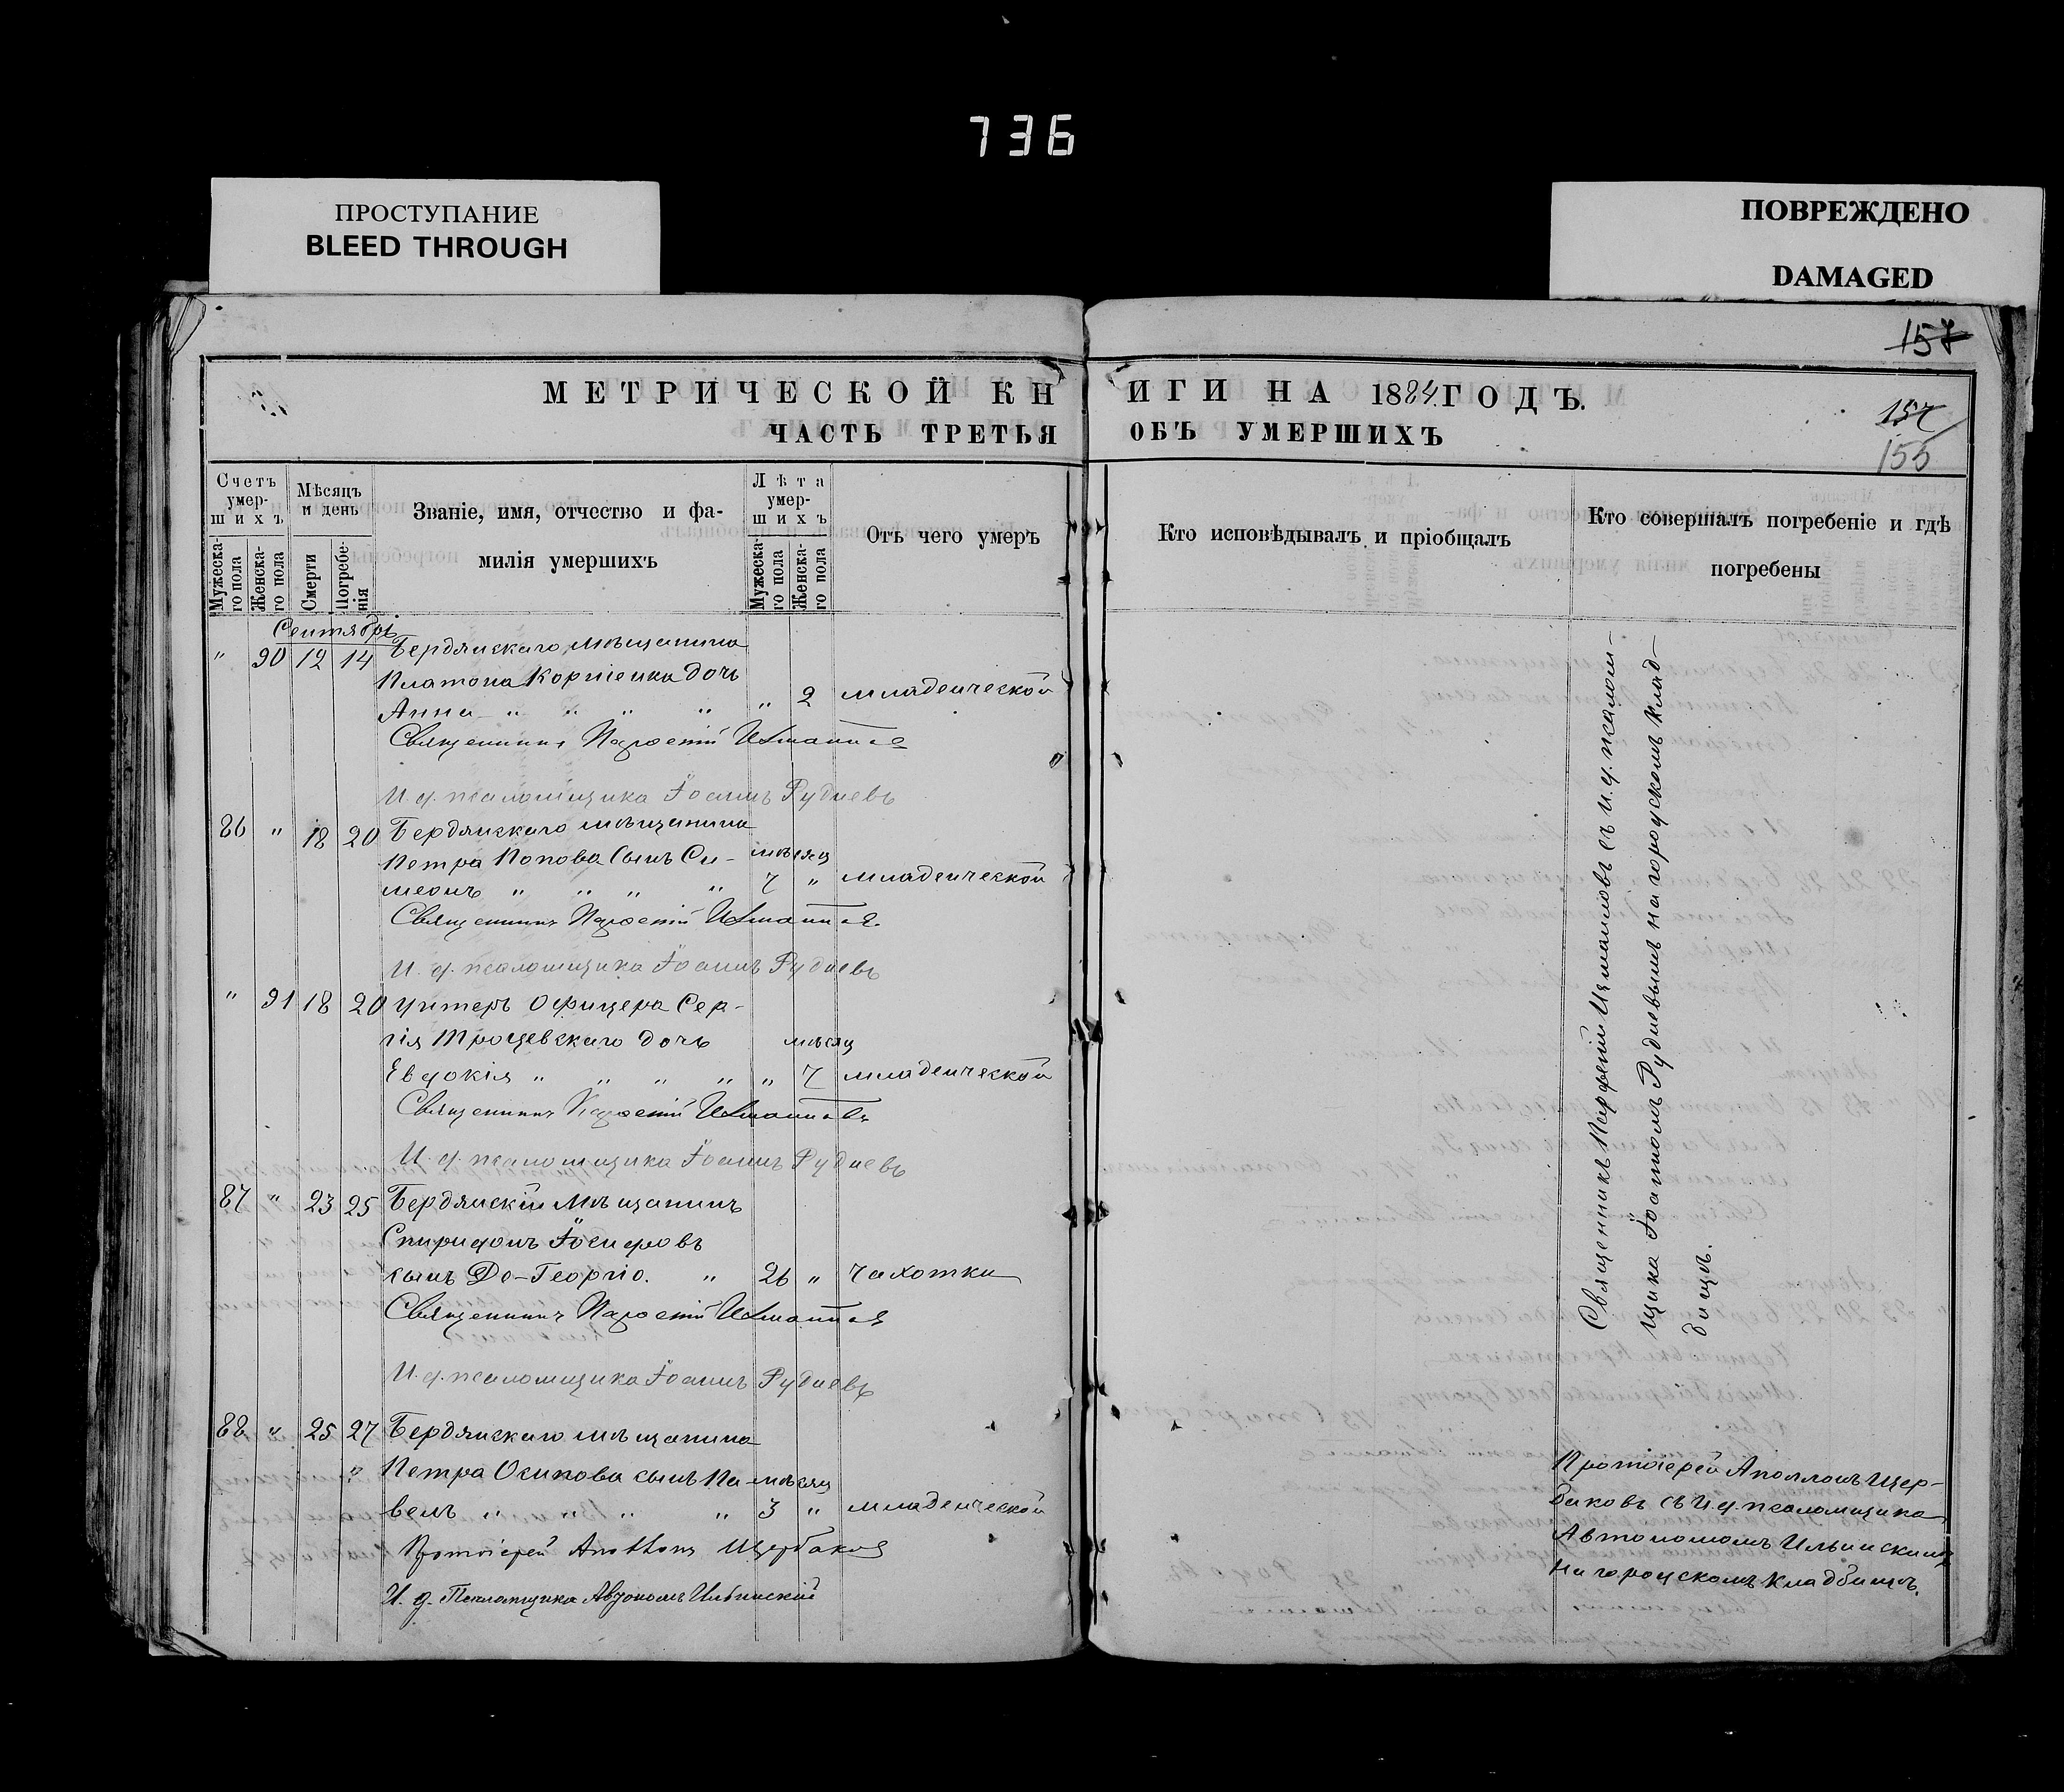 736
ПРОСТУПАНИЕ
BLEED THROUGH
ПОВРЕЖДЕНО
DAMAGED
157
157
155
МЕТРИЧЕСКОЙ КНИГИ НА 1884 ГОДЪ.
ЧАСТЬ ТРЕТЬЯ ОБЪ УМЕРШИХЪ
Счетъ умершихъ
Мужескаго пола
Женскаго пола
Мѣсяцъ и день
Смерти
Погребенія
Званіе, имя, отчество и фа-
милія умершихъ
Лѣта умершихъ
Мужескаго пола
Женскаго пола
Отъ чего умеръ
Кто исповѣдывалъ и пріобщалъ
Кто совершалъ погребеніе и гдѣ
погребены
Сентябрь
" 90 12 14 Бердянскаго мѣщанина
Платона Корніенка дочь
Анна " " " " " 2 младенческой
Священникъ Парѳеній Измаиловъ
И. д. псаломщика Іоаннъ Рудневъ
86 " 18 20 Бердянскаго мѣщанина
Петра Попова сынъ Си- мѣсяц
меонъ " " " " 7 " младенческой
Священникъ Парѳеній Измаиловъ
И. д. псаломщика Іоаннъ Рудневъ
" 91 18 20 Унтеръ Офицера Сер-
гія Трощевскаго дочь мѣсяц
Евдокія " " " " " 7 младенческой
Священникъ Парѳеній Измаиловъ
И. д. псаломщика Іоаннъ Рудневъ
87 " 23 25 Бердянскій мѣщанинъ
Спиридонъ Іосифовъ
сынъ Де-Георгіо. " 26 " чахотки
Священникъ Парѳеній Измаиловъ
И. д. псаломщика Іоаннъ Рудневъ
88 " 25 27 Бердянскаго мѣщанина
" Петра Осипова сынъ Па- мѣсяц
велъ " " " " 3 " младенческой
Протоіерей Аполлонъ Щербаковъ
И. д. Псаломщика Автономъ Ильинскій
Священникъ Парфеній Измаиловъ съ И. д. псалом-
щика Іоанномъ Рудневымъ на городскомъ клад-
бищѣ.
Протоіерей Аполлонъ Щер-
баковъ съ И. д. псаломщика
Автономомъ Ильинскимъ
на городскомъ кладбищѣ.